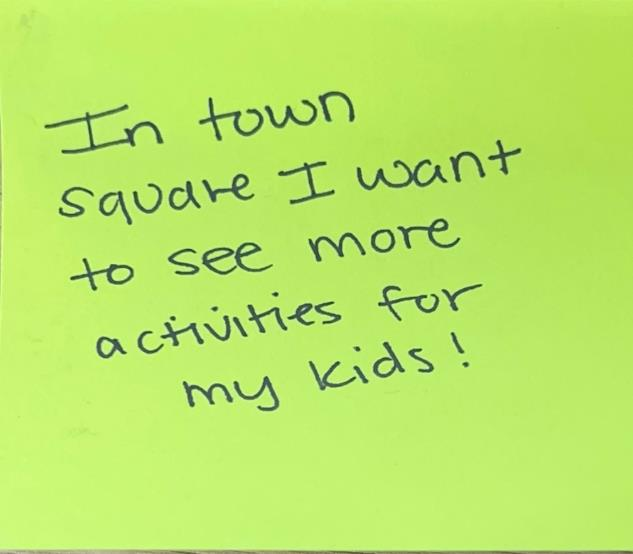 In town
square I want
to see more
activities for
my kids!